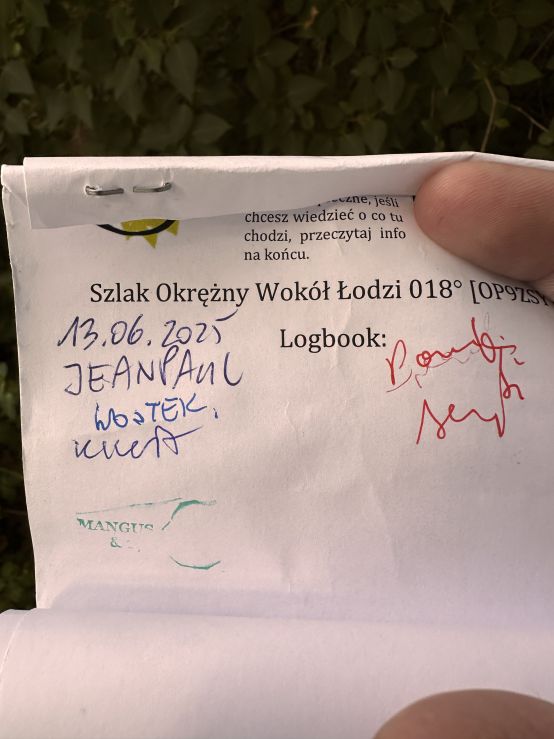 jeśli
chcesz wiedzieć o co tu
chodzi, przeczytaj info
na końcu.
Szlak Okrężny Wokół Łodzi 018° [OP9ZS
Logbook:
13.06.2025
JEANPAUL
WOJTEK.
MANGUS
&